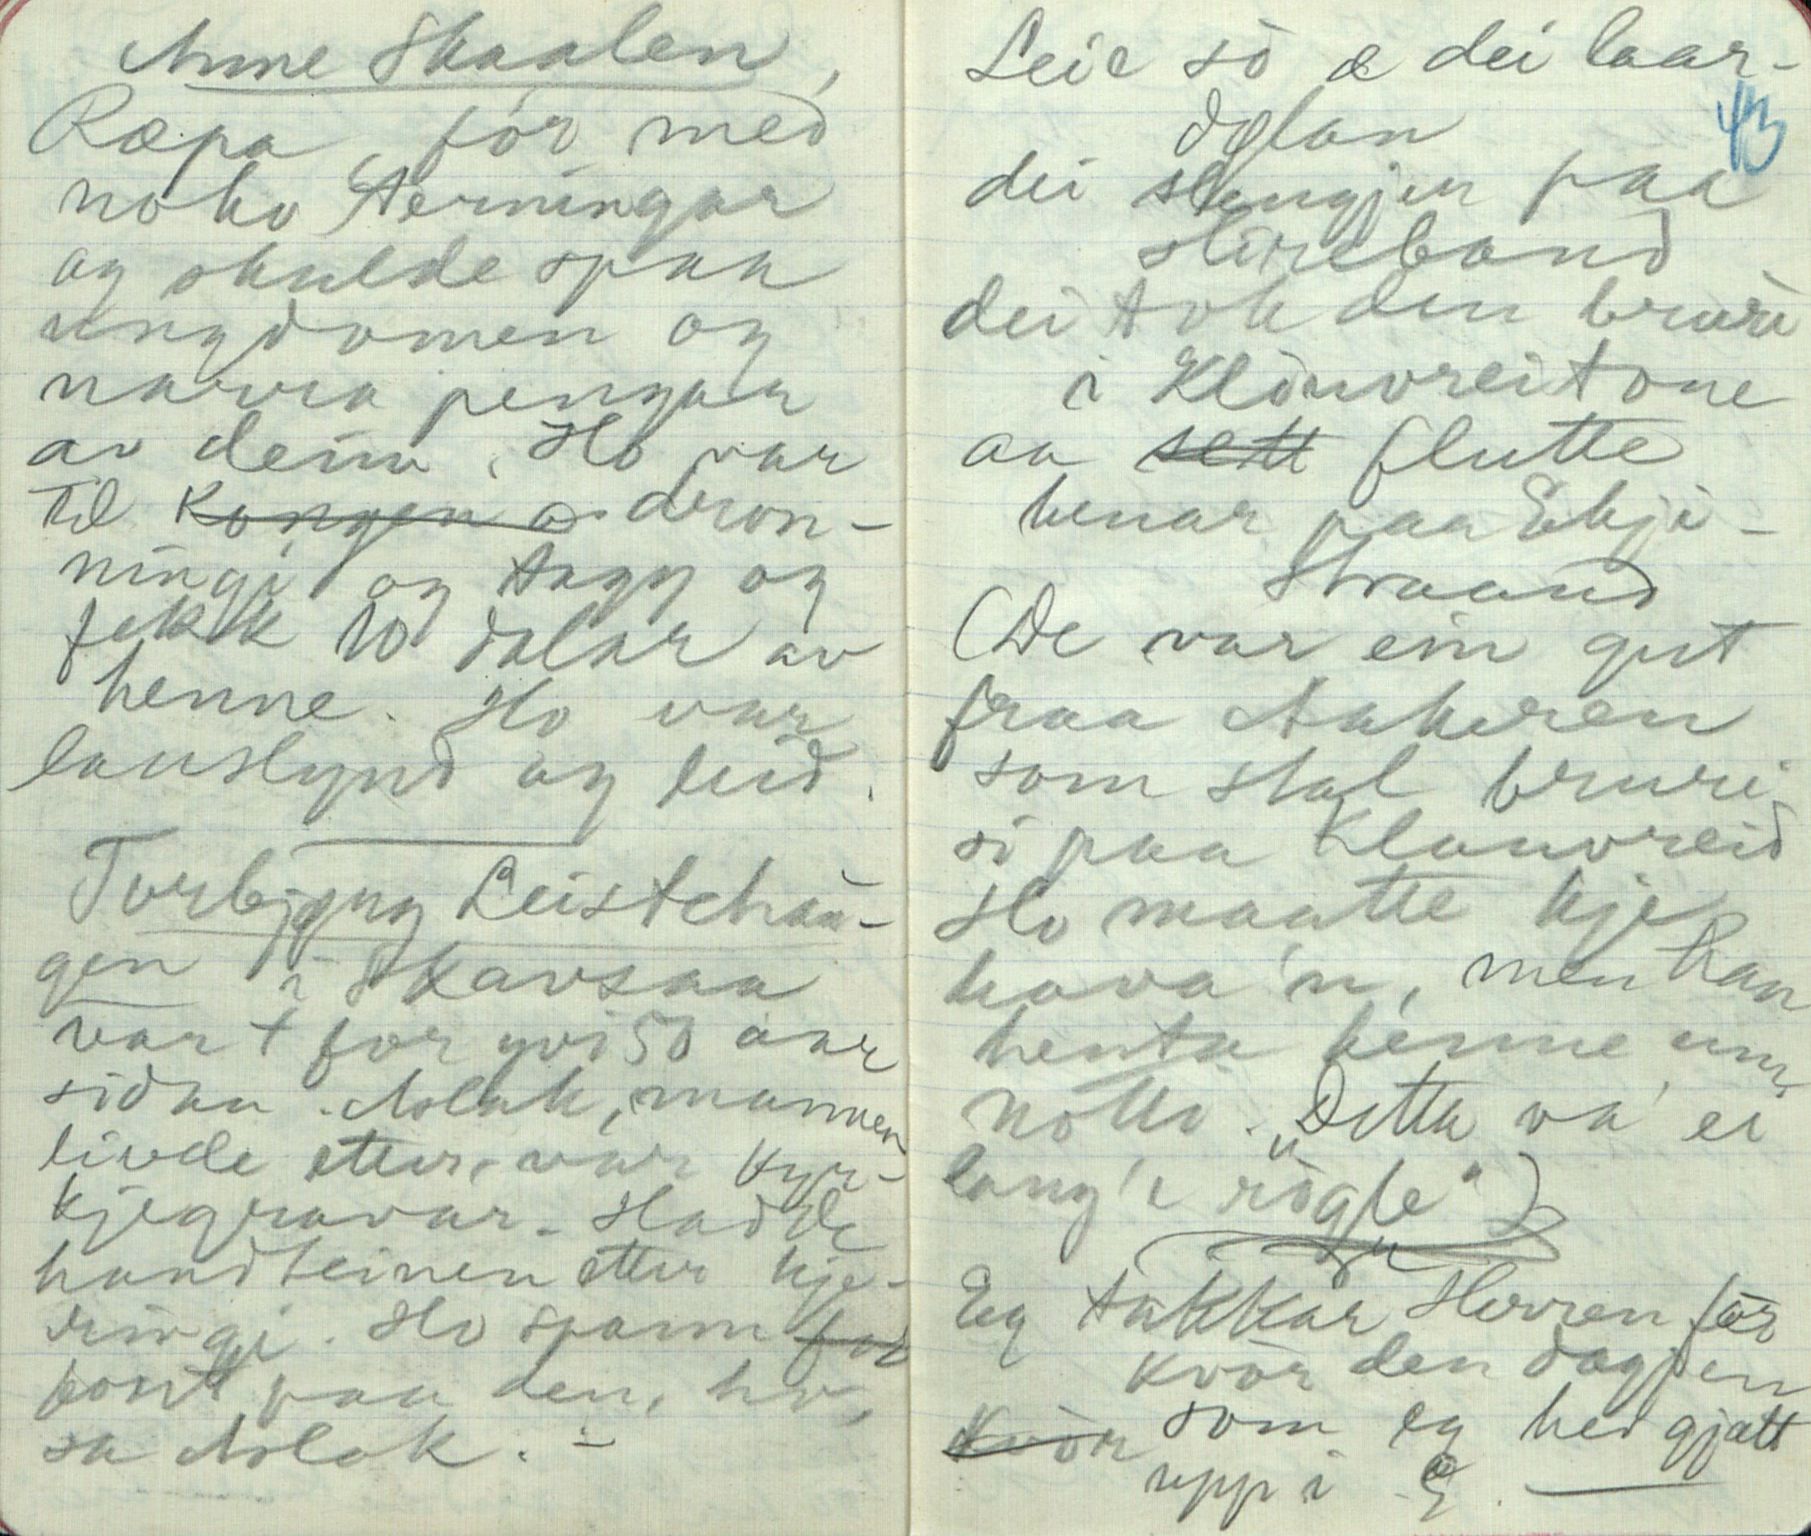 Anne Skaalen,
Ræpa, fór med
noko Terningar
og skulde spaa
ungdomen og
narra pengan
av deim. Ho var
til Kongen o dron-
ningi og tagg og
fekk 10 dalar av
henne. Ho var
lauslynd og leid.
Torbjønn Leistehau-
gen i Skavsaa
var t for yvi 50 aar
sidan. Aslak, mannen
livde etter, var Kyr-
kjegravar. Hadde
handteinen etter kje-
ringi. Ho spann for
bont paa den, ho,
sa Aslak. -
Leie sò æ dei laar-
dølan
43
dei slengjer paa
slireband
dei tok den bruri
i Klònvreitone
aa sett flutte
henar paa Ekji-
Straand
(De var ein gut
fraa Aakeren
som stal bruri
si paa Klonvreid
Ho maatte kje
hava 'n, men han
henta henne um
notti. "Detta va' ei
lang'e røgle")
Eg takkar Herren før
kvòr den dagjen
Kvòr som eg hev gjatt
uppi